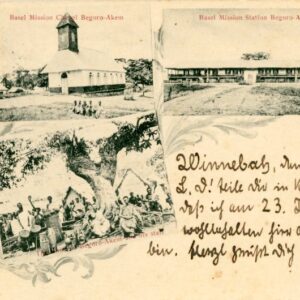 Basel Mission Chapel Begoro-Akem
Basel Mission Station Begoro-A
Begoro-Akem
Winnebah, den
L. D.! teile dir in
daß ich am 23. J
wohlerhalten hier
bin. Herzl grüßt Dich